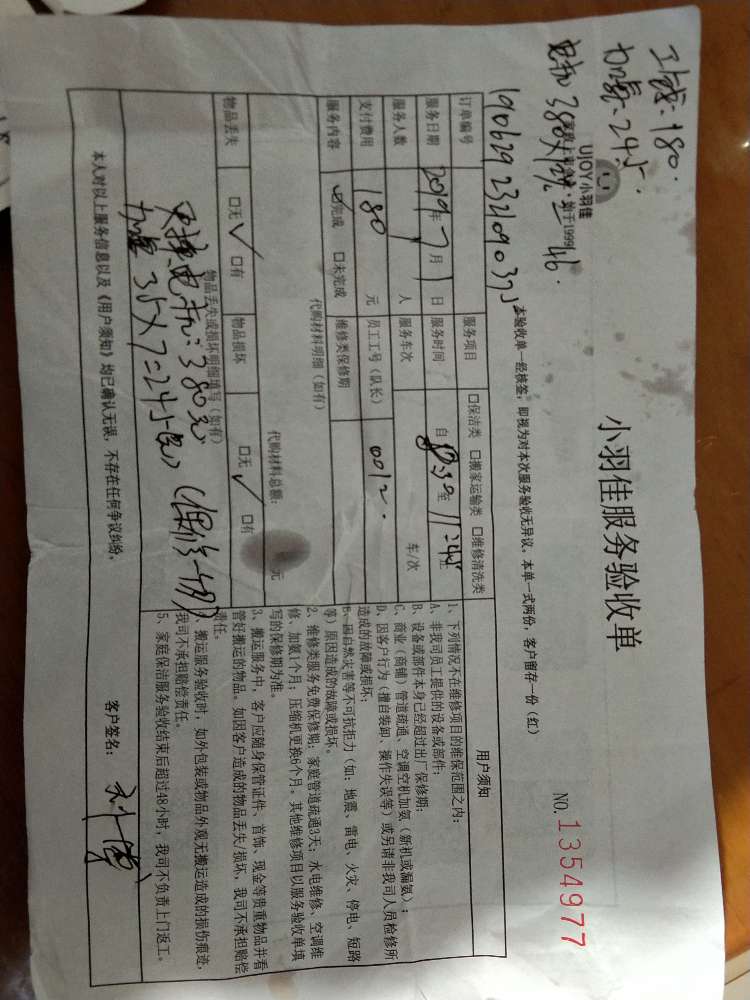 工钱:180.
加氟:245.
UJOY小羽佳
小羽佳服务验收单
NO.1354977
本验收单一经核签,即视为对本次服务验收无异议,本单一式两份,客户留存一份(红)
订单编号
服务项目 □保洁类 □搬家运输类 □维修清洗类
服务日期 2019年7月1日 服务时间
服务人数 人 服务车次 车/次
支付费用 180 元 员工工号(队长) 0012.
服务内容 ☑完成 □未完成 维修类保修期
代购材料明细(如有)
代购材料总额: 元
物品丢失 □无 ✓ □有 物品损坏 □无 ✓ □有
物品丢失或损坏明细填写(如有)
更换电机:380元
加氟35×7=245元
本人对以上服务信息以及《用户须知》均已确认无误,不存在任何争议纠纷。
用户须知
1、下列情况不在维修项目的维保范围之内:
A、非我司员工提供的设备或部件;
B、设备或部件本身已经超过出厂保修期;
C、商业(商铺)管道疏通、空调空机加氨(新机或漏氨);
D、因客户行为(擅自装卸、操作失误等)或另请非我司人员检修所
造成的故障或损坏;
E、因自然灾害等不可抗拒力(如:地震、雷电、火灾、停电、短路
等)原因造成的故障或损坏。
2、维修类服务免费保修期:家庭管道疏通3天;水电维修、空调维
修、加氨1个月;压缩机更换6个月。其他维修项目以服务验收单填
写的保修期为准。
3、搬运服务中,客户应随身保管证件、首饰、现金等贵重物品并看
管好搬运的物品。如因客户造成的物品丢失/损坏,我司不承担赔偿
责任。
4、搬运服务验收时,如外包装或物品外观无搬运造成的损伤痕迹,
我司不承担赔偿责任。
5、家庭保洁服务验收结束后超过48小时,我司不负责上门返工。
客户签名: